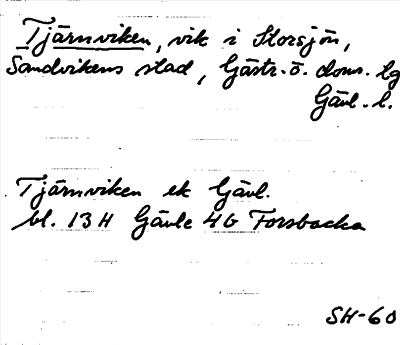 Tjärnviken, vik i Storsjön,
Sandvikens stad, Gästr. ö. doms. lg
Gävl. l.
Tjärnviken ek Gävl.
bl. 13 H Gävle 4G Forsbacka
SH-60